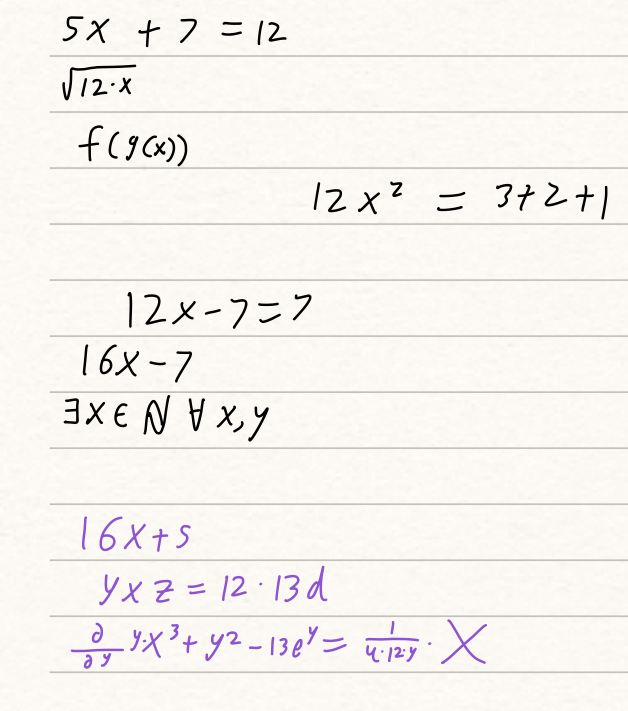 5x + 7 = 12
√(12·x)
f(g(x))
12x² = 3+2+1
12x-7=7
16x-7
∃x∈ℕ ∀x,y
16x+5
yxz = 12·13d
∂/∂y y·x³+y²-13eʸ = 1/(4·12·y) · X